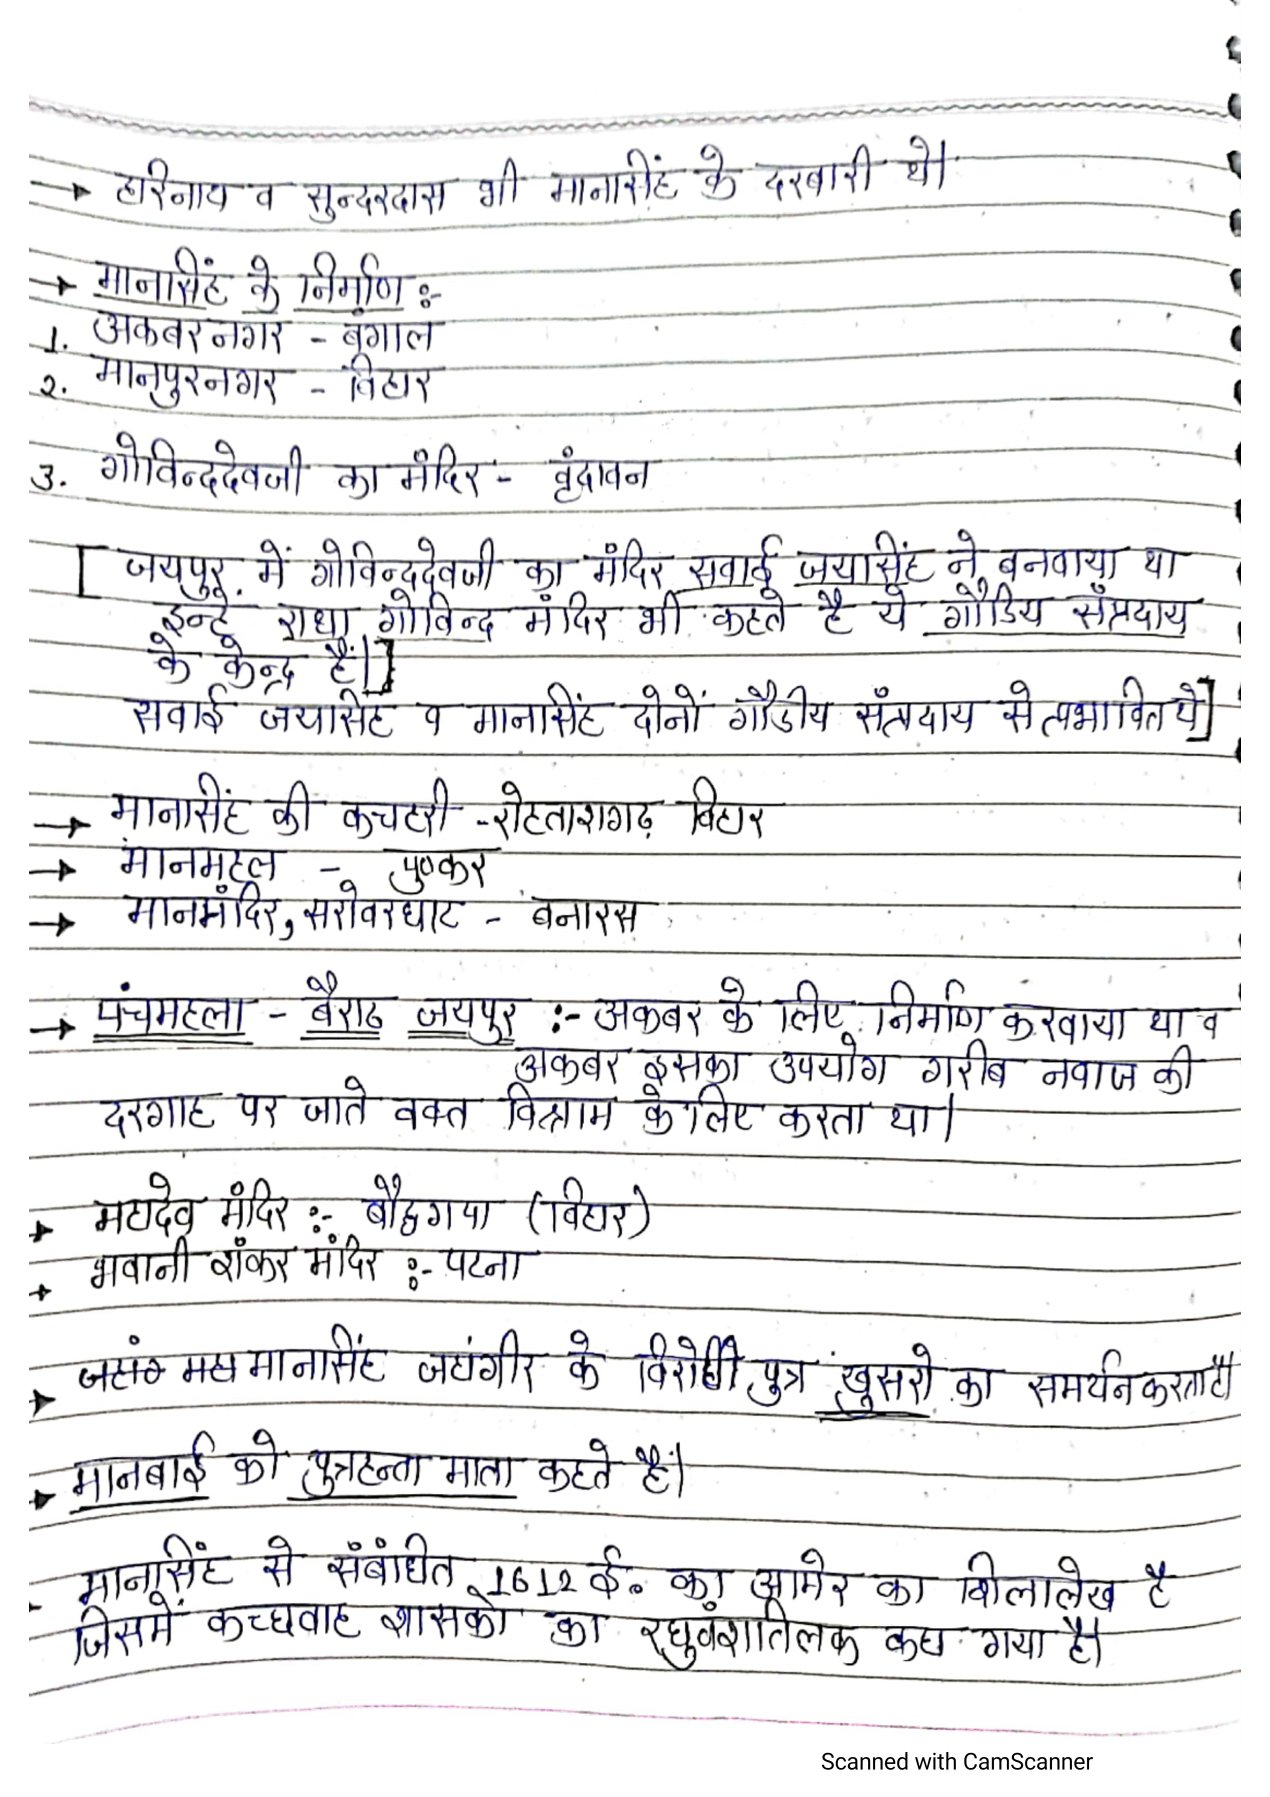 → हरिनाथ व सुन्दरदास भी मानसिंह के दरबारी थे।
→ मानसिंह के निर्माण :-
1. अकबरनगर - बंगाल
2. मानपुरनगर - बिहार
3. गोविन्ददेवजी का मंदिर - वृंदावन
[ जयपुर में गोविन्ददेवजी का मंदिर सवाई जयसिंह ने बनवाया था
इन्हे राधा गोविन्द मंदिर भी कहते है ये गौडिय संप्रदाय
के केन्द्र हैं।]
सवाई जयसिंह व मानसिंह दोनों गौडीय संप्रदाय से प्रभावित थे]
→ मानसिंह की कचहरी - रोहतासगढ़ बिहार
→ मानमहल - पुष्कर
→ मानमंदिर, सरोवरघाट - बनारस
→ पंचमहला - बैराठ जयपुर :- अकबर के लिए निर्माण करवाया था व
अकबर इसका उपयोग गरीब नवाज की
दरगाह पर जाते वक्त विश्राम के लिए करता था।
→ महादेव मंदिर :- बौद्धगया (बिहार)
→ भवानी शंकर मंदिर :- पटना
→ मानसिंह जहांगीर के विरोधी पुत्र खुसरो का समर्थन करता है।
→ मानबाई को पुत्रहन्ता माता कहते हैं।
- मानसिंह से संबंधित 1612 ई. का आमेर का शिलालेख है
जिसमें कच्छवाह शासको का रघुवंशतिलक कहा गया है।
Scanned with CamScanner